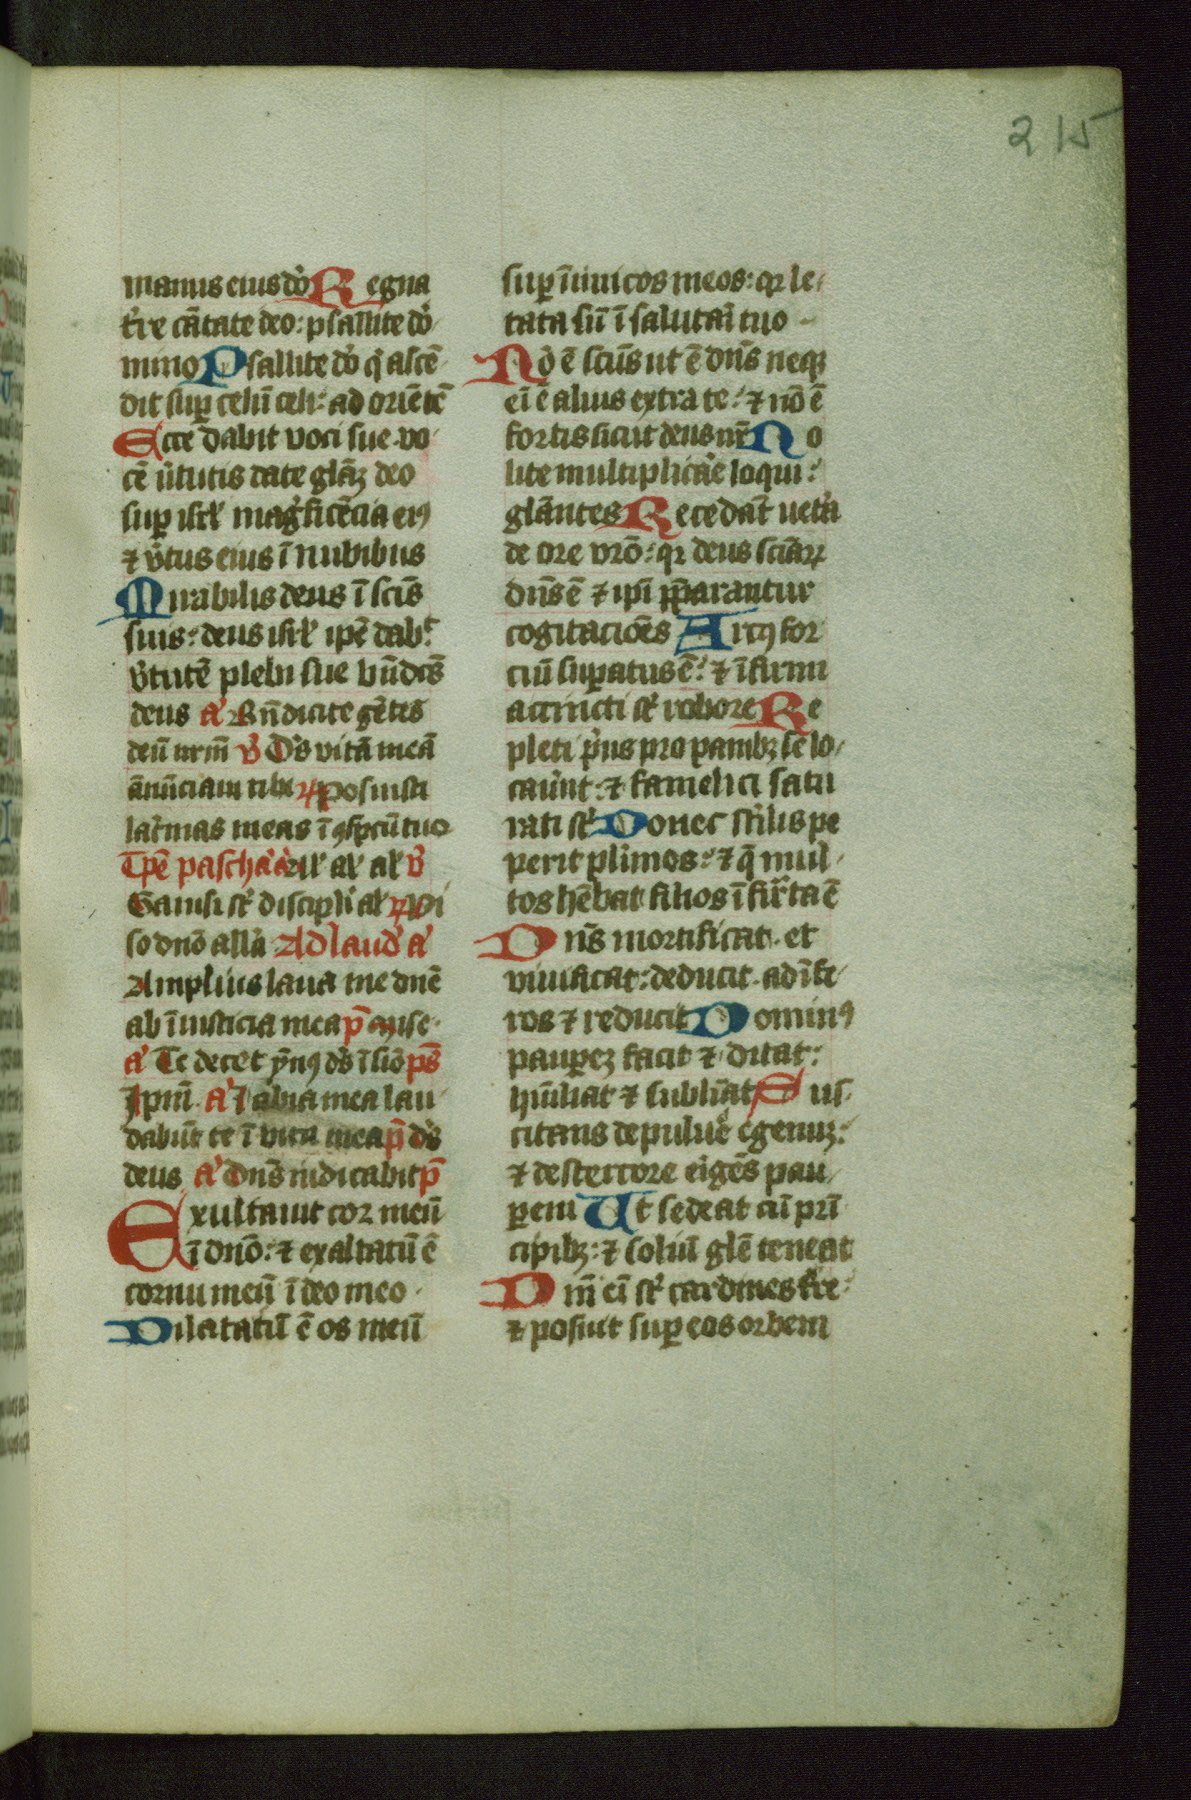 215
manus eius dō Regna
t're cātate deo: psallite dō
mino Psallite dō q' ascē
dit sup celū celi: ad oriētē
Ecce dabit voci sue vo
cē v'tutis date glāz deo
sup isrl' mag'ficēcia eiꝰ
⁊ v'tus eius ī nubibus
Mirabilis deus ī scīs
suis: deus isrl' ipē dabᵗ
v'tutē plebi sue bn̄dcūs
deus a' Bn̄dicite gētes
deū nrm̄ v' Ds vitā meā
ānūciaui tibi ꝶ Posuisti
lac'mas meas ī ꝯspcū tuo
Tpē pascha' a' All' al' al' v'
Gauisi st' discipli al' ꝶ Vi
so dnō alla' Ad laud' a'
Amplius laua me dnē
ab īiusticia mea p̄ Mise
a' Te decet ymꝰ ds ī sio ps̄
Ipm̄ a' Labia mea lau
dabūt te ī vita mea p̄ ds
deus a' Dn̄s iudicabit p̄
Exultauit cor meū
ī dnō: ⁊ exaltatū ē
cornu meū ī deo meo
Dilatatū ē os meū
sup īimicos meos: qꝛ le
tata sū ī salutari tuo
Nō ē scūs ut ē dn̄s neqꝫ
eī ē alius extra te: ⁊ nō ē
fortis sicut deus nr̄ No
lite multiplicare loqui:
glāntes Recedāt uet'a
de ore vrō: qꝛ deus sciāꝝ
dn̄s ē ⁊ ipi p̄parantur
cogitaciōes Arcꝰ for
ciū supatus ē: ⁊ īfirmi
accincti st' robore Re
pleti p'us pro panibꝫ se lo
cauṙt: ⁊ famelici satu
rati st' Donec st'ilis pe
perit pl'imos: ⁊ q̄ mul
tos hēbat filios īfirᵃta ē
Dn̄s mortificat et
viuificat: deducit ad īfe
ros ⁊ reducit Dominꝰ
paupeꝫ facit ⁊ ditat:
hūiliat ⁊ subliāt Sus
citans de puluē egenuꝫ:
⁊ de stercore eigēs pau
perem Ut sedeat cū pri
cipibꝫ: ⁊ soliū glē teneat
Dnī eī st' cardines t're
⁊ posuit sup eos orbem